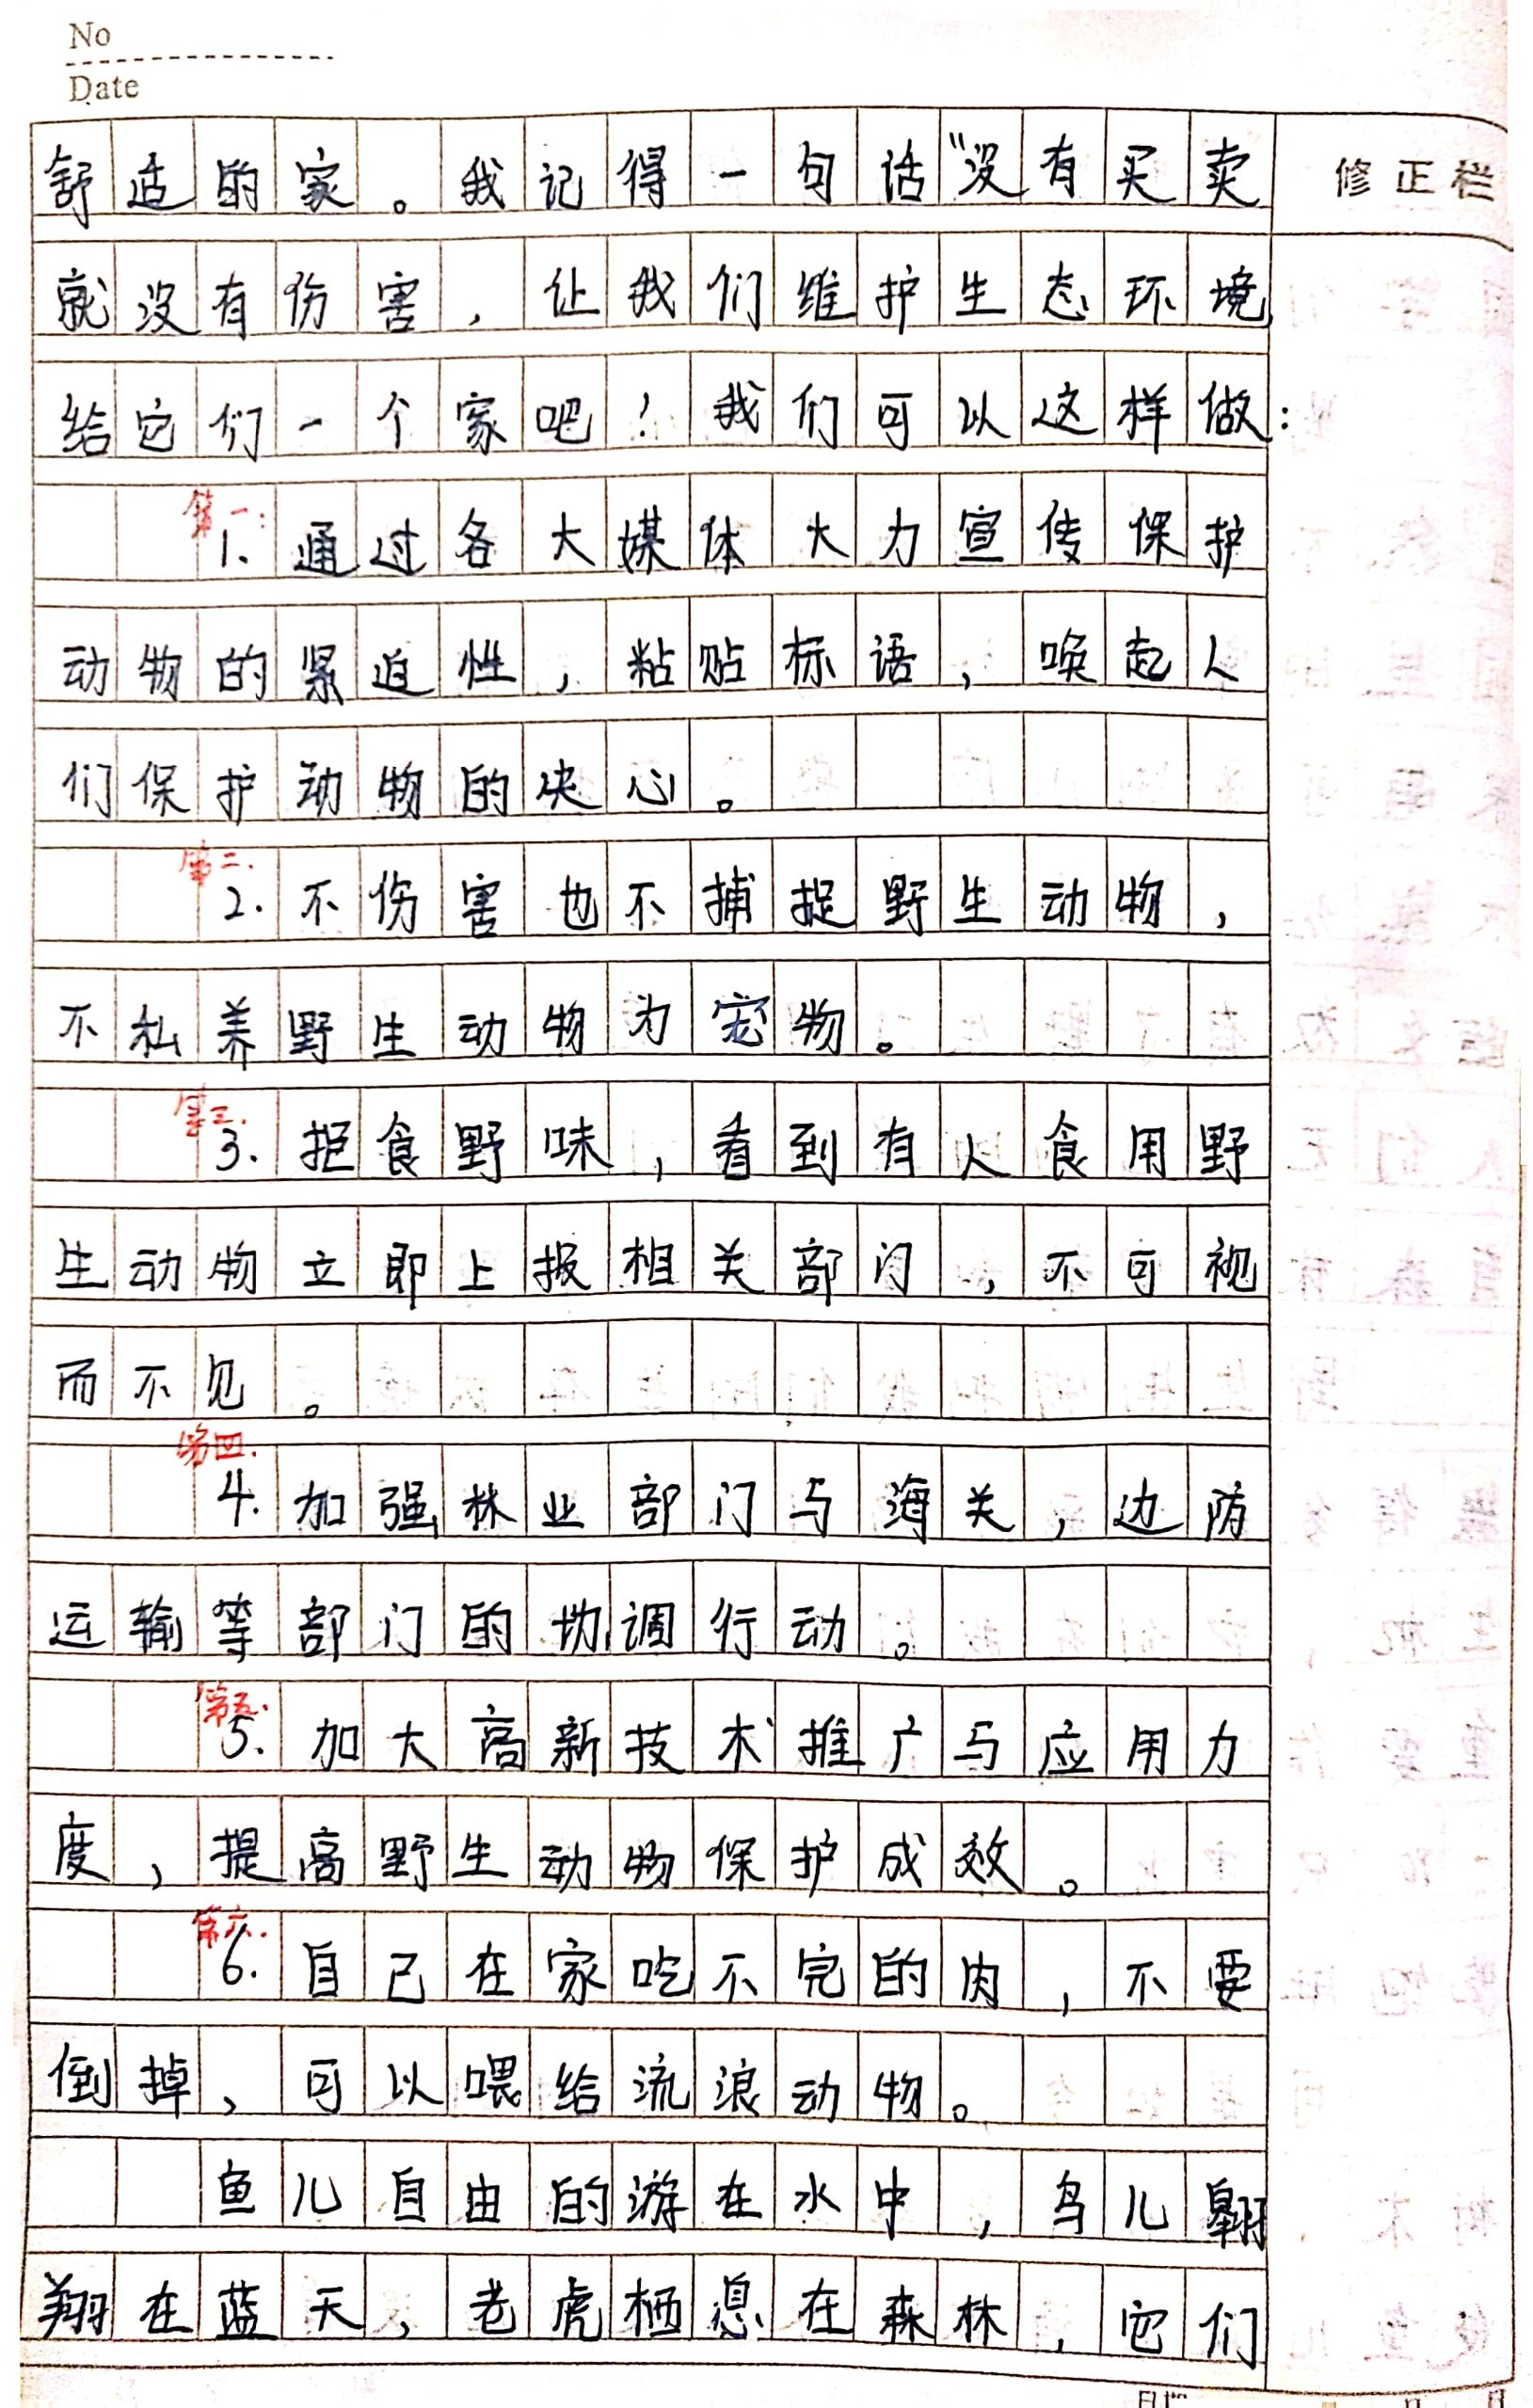 No
Date
修正栏
舒适的家。我记得一句话“没有买卖
就没有伤害，让我们维护生态环境,
给它们一个家吧！我们可以这样做：
第一：
1.通过各大媒体大力宣传保护
动物的紧迫性，粘贴标语，唤起人
们保护动物的决心。
第二.
2.不伤害也不捕捉野生动物，
不私养野生动物为宠物。
第三.
3.拒食野味，看到有人食用野
生动物立即上报相关部门，不可视
而不见。
第四.
4.加强林业部门与海关，边防
运输等部门的协调行动。
第五.
5.加大高新技术推广与应用力
度，提高野生动物保护成效。
第六.
6.自己在家吃不完的肉，不要
倒掉，可以喂给流浪动物。
鱼儿自由的游在水中，鸟儿翱
翔在蓝天，老虎栖息在森林，它们